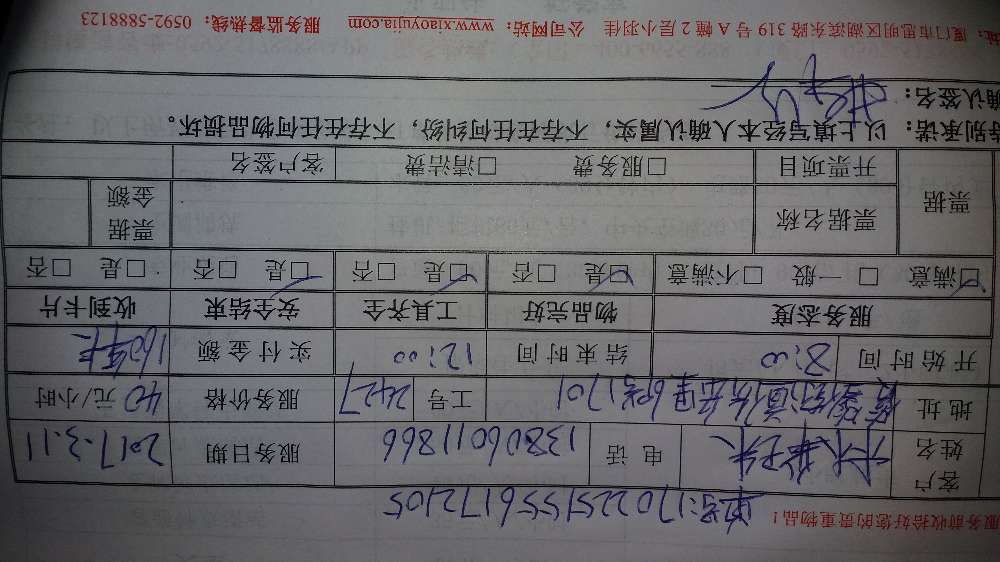 服务前收拾好您的贵重物品！
单号：170225155617 2105
客户姓名 电话 13806011866 服务日期 2017.3.11
地址 1701 工号 2427 服务价格 40元/小时
开始时间 8:00 结束时间 12:00 实付金额 160
服务态度 物品完好 工具齐全 安全结束 收到卡片
☑满意 □一般 □不满意 ☑是 □否 ☑是 □否 ☑是 □否 □是 □否
票据 票据名称 票据金额
开票项目 □服务费 □清洁费 客户签名
特别承诺：以上填写经本人确认属实，不存在任何纠纷，不存在任何物品损坏。
确认签名：
址：厦门市思明区湖滨东路319号A幢2层小羽佳 公司网站：www.xiaoyujia.com 服务监督热线：0592-5888123